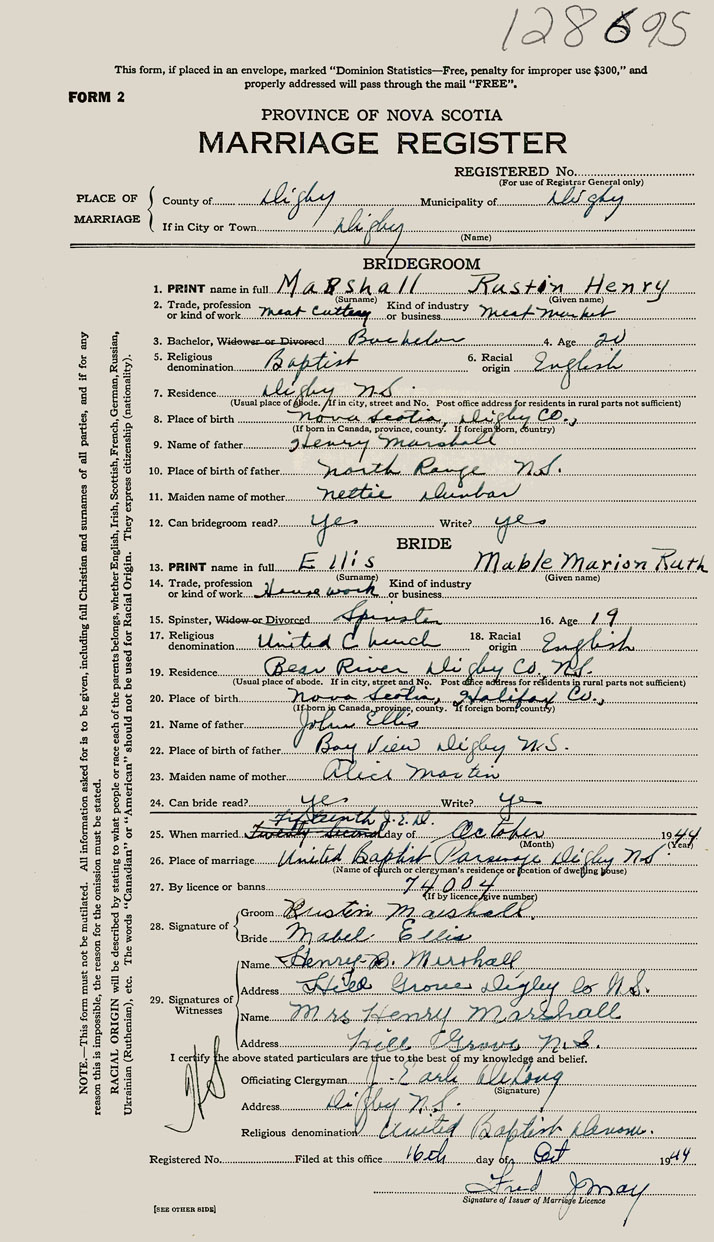 128695
This form, if placed in an envelope, marked “Dominion Statistics—Free, penalty for improper use $300,” and
properly addressed will pass through the mail “FREE”.
FORM 2
PROVINCE OF NOVA SCOTIA
MARRIAGE REGISTER
REGISTERED No.
(For use of Registrar General only)
PLACE OF MARRIAGE
County of Digby Municipality of Digby
If in City or Town Digby
(Name)
BRIDEGROOM
1. PRINT name in full Marshall Rustin Henry
(Surname) (Given name)
2. Trade, profession or kind of work Meat Cutter Kind of industry or business Meat Market
3. Bachelor, Widower or Divorced Bachelor 4. Age 20
5. Religious denomination Baptist 6. Racial origin English
7. Residence Digby N.S.
(Usual place of abode. If in city, street and No. Post office address for residents in rural parts not sufficient)
8. Place of birth Nova Scotia, Digby Co.,
(If born in Canada, province, county. If foreign born, country)
9. Name of father Henry Marshall
10. Place of birth of father North Range N.S.
11. Maiden name of mother Nettie Dunbar
12. Can bridegroom read? yes Write? yes
BRIDE
13. PRINT name in full Ellis Mable Marion Ruth
(Surname) (Given name)
14. Trade, profession or kind of work House work Kind of industry or business
15. Spinster, Widow or Divorced Spinster 16. Age 19
17. Religious denomination United Church 18. Racial origin English
19. Residence Bear River Digby Co, N.S.
(Usual place of abode. If in city, street and No. Post office address for residents in rural parts not sufficient)
20. Place of birth Nova Scotia, Halifax Co.,
(If born in Canada, province, county. If foreign born, country)
21. Name of father John Ellis
22. Place of birth of father Bay View Digby N.S.
23. Maiden name of mother Alice Martin
24. Can bride read? yes Write? yes
Fifteenth J.E.D.
25. When married Twenty Second day of October 1944
(Month) (Year)
26. Place of marriage United Baptist Parsonage Digby N.S.
(Name of church or clergyman's residence or location of dwelling house)
27. By licence or banns 74004
(If by licence, give number)
28. Signature of
Groom Rustin Marshall
Bride Mabel Ellis
29. Signatures of Witnesses
Name Henry B. Marshall
Address Hill Grove Digby Co N.S.
Name Mrs Henry Marshall
Address Hill Grove N.S.
I certify the above stated particulars are true to the best of my knowledge and belief.
Officiating Clergyman J. Earle DeLong
(Signature)
Address Digby N.S.
Religious denomination United Baptist Denom.
Registered No. Filed at this office 16th day of Oct 1944
Fred J May
Signature of Issuer of Marriage Licence
[SEE OTHER SIDE]
NOTE.—This form must not be mutilated. All information asked for is to be given, including full Christian and surnames of all parties, and if for any
reason this is impossible, the reason for the omission must be stated.
RACIAL ORIGIN will be described by stating to what people or race each of the parents belongs, whether English, Irish, Scottish, French, German, Russian,
Ukrainian (Ruthenian), etc. The words “Canadian” or “American” should not be used for Racial Origin. They express citizenship (nationality).